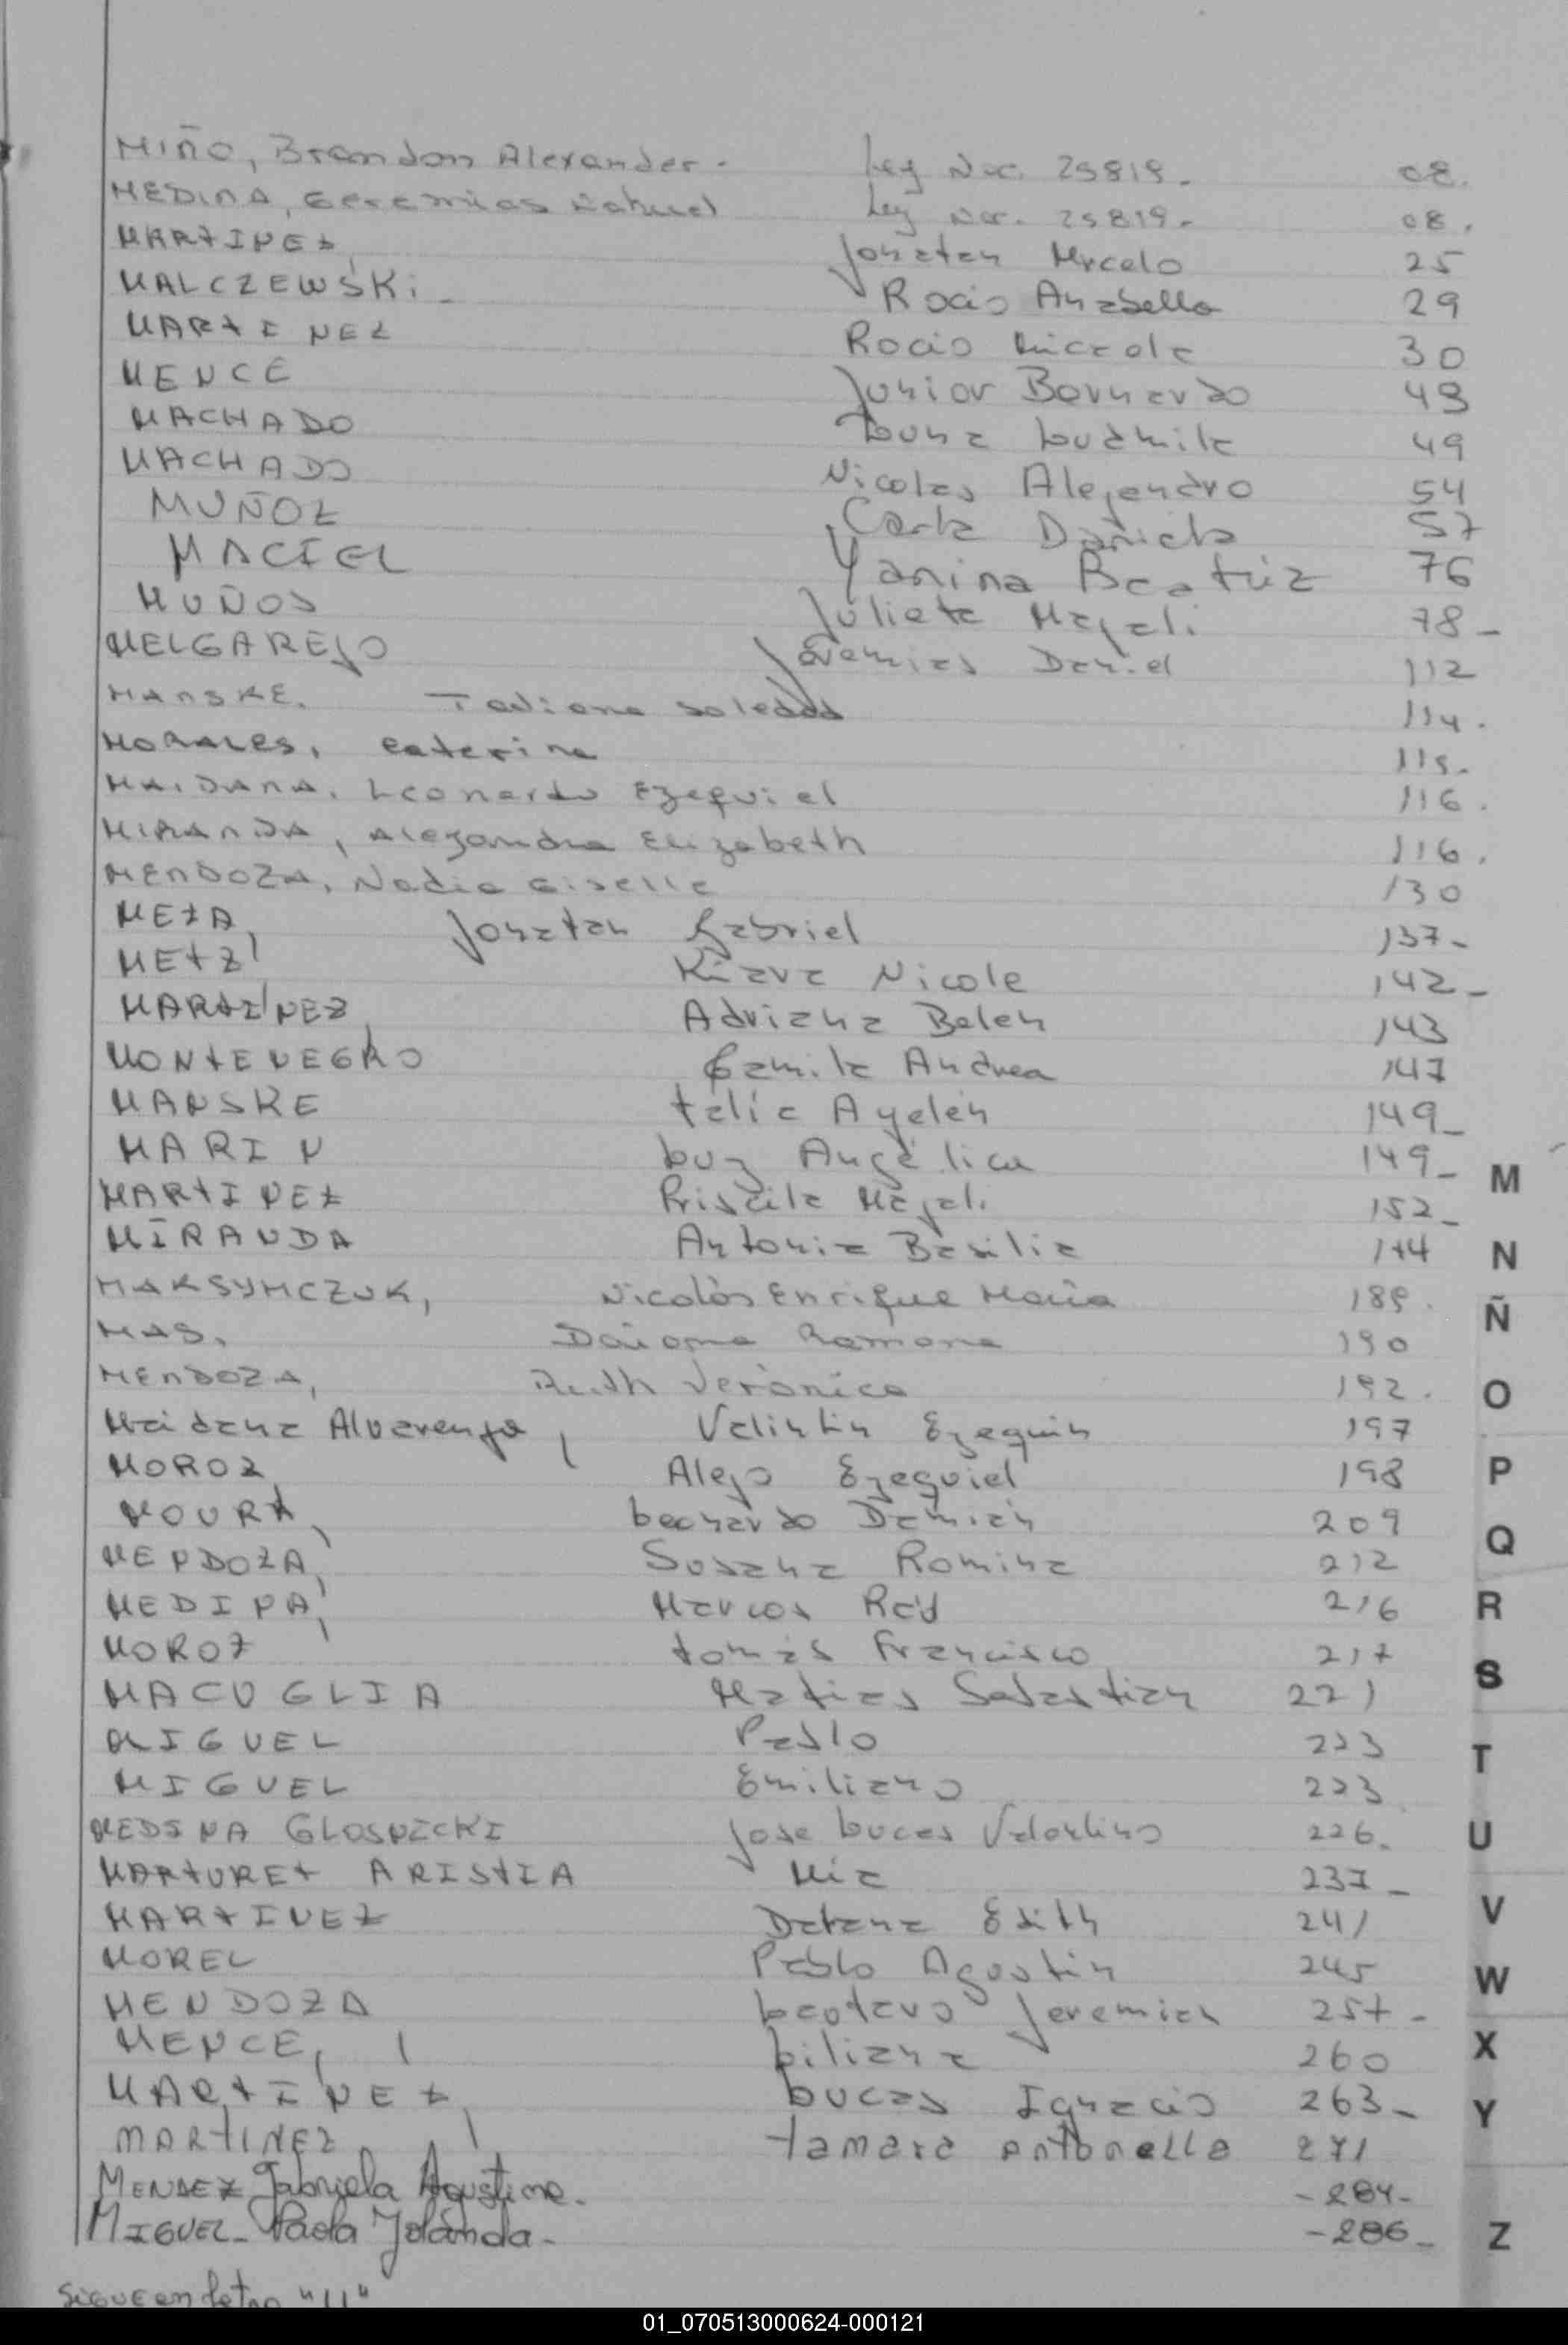 MIÑO, Brandon Alexander. Ley Nac. 25819. 08.
MEDINA, Geremias Nahuel Ley Nac. 25819. 08.
MARTINEZ, Jonatan Mrcelo 25
MALCZEWSKi Rocio Anabella 29
MARTINEZ Rocio Micaela 30
MENCE Junior Bernardo 43
MACHADO Luna Ludmila 49
MACHADO Nicolas Alejandro 54
MUÑOZ Carla Daniela 57
MACIEL Yanina Beatriz 76
MUÑOS Julieta Magali 78-
MELGAREJO Jeremias Daniel 112
MANSKE. Tatiana Soledad 114.
MORALES, Caterina 115.
MAIDANA. Leonardo Ezequiel 116.
MIRANDA, Alejandra Elizabeth 116.
MENDOZA, Nadia Giselle 130
MEZA, Jonatan Gabriel 137-
METZ, Kiara Nicole 142-
MARTINEZ, Adriana Belen 143
MONTENEGRO Camila Andrea 147
MANSKE Talia Ayelén 149-
MARIN Luz Angélica 149-
MARTINEZ Priscila Magali 152-
MIRANDA Antonia Basilia 174
MAKSYMCZUK, Nicolás Enrique María 189.
MAS. Daiana Ramona 190
MENDOZA, Ruth Verónica 192.
Maidana Alvarenga, Valintin Ezequin 197
MOROZ Alejo Ezequiel 198
MOURA, Leonardo Damián 209
MENDOZA, Susana Romina 212
MEDINA, Marcos 216
MOROZ Tomás Francisco 217
MACUGLIA Matias Sebastian 221
MIGUEL Pablo 223
MIGUEL Emiliano 223
MEDINA GLOSNICKI Jose Lucas Valentino 226.
MARTURET ARISTIA Mia 237-
MARTINEZ Daiana Edith 241
MOREL Pablo Agustin 245
MENDOZA Lautaro Jeremias 257-
MENCE, Liliana 260
MARTINEZ, Lucas Ignacio 263-
MARTINEZ Tamara Antonella 271
MENDEZ Gabriela Agustina. -284-
MIGUEL- Paola Yolanda- -286-
Sigue en letra "U"
M
N
Ñ
O
P
Q
R
S
T
U
V
W
X
Y
Z
01_070513000624-000121